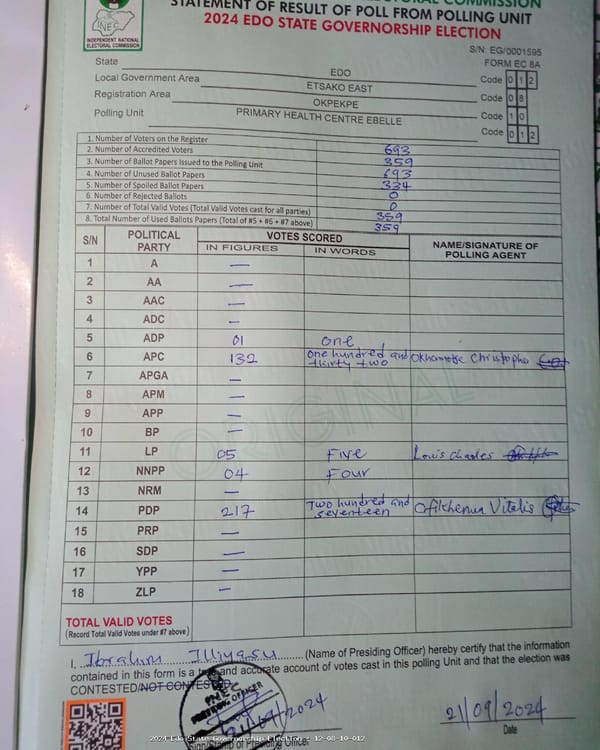 INEC
INDEPENDENT NATIONAL
ELECTORAL COMMISSION
ELECTORAL COMMISSION
STATEMENT OF RESULT OF POLL FROM POLLING UNIT
2024 EDO STATE GOVERNORSHIP ELECTION
S/N: EG/0001595
FORM EC 8A
State EDO Code 0 1 2
Local Government Area ETSAKO EAST Code 0 8
Registration Area OKPEKPE Code 1 0
Polling Unit PRIMARY HEALTH CENTRE EBELLE Code 0 1 2
1. Number of Voters on the Register 693
2. Number of Accredited Voters 359
3. Number of Ballot Papers Issued to the Polling Unit 693
4. Number of Unused Ballot Papers 334
5. Number of Spoiled Ballot Papers 0
6. Number of Rejected Ballots 0
7. Number of Total Valid Votes (Total Valid Votes cast for all parties) 359
8. Total Number of Used Ballots Papers (Total of #5 + #6 + #7 above) 359
S/N POLITICAL PARTY VOTES SCORED NAME/SIGNATURE OF POLLING AGENT
IN FIGURES IN WORDS
1 A —
2 AA —
3 AAC —
4 ADC —
5 ADP 01 one
6 APC 132 one hundred and thirty two Christopher
7 APGA —
8 APM —
9 APP —
10 BP —
11 LP 05 Five Louis Charles
12 NNPP 04 Four
13 NRM —
14 PDP 217 Two hundred and seventeen Vitalis
15 PRP —
16 SDP —
17 YPP —
18 ZLP —
ORIGINAL
TOTAL VALID VOTES
(Record Total Valid Votes under #7 above)
I, Ibrahim Illiyasu (Name of Presiding Officer) hereby certify that the information
contained in this form is a true and accurate account of votes cast in this polling Unit and that the election was
CONTESTED/NOT CONTESTED
INEC
PRESIDING OFFICER
21/09/2024
21/09/2024
Date
Presiding Officer
2024 Edo State Governorship Election - 12-08-10-012